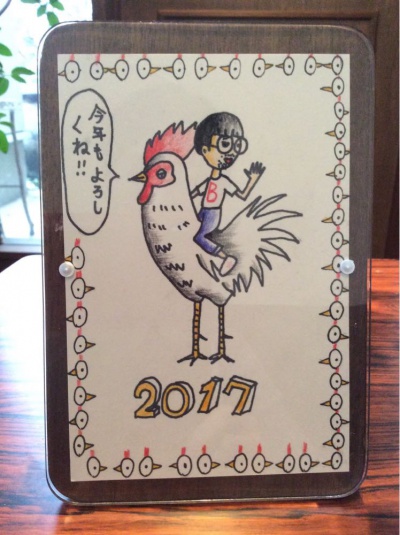 今年もよろし
くね!!
B
2017